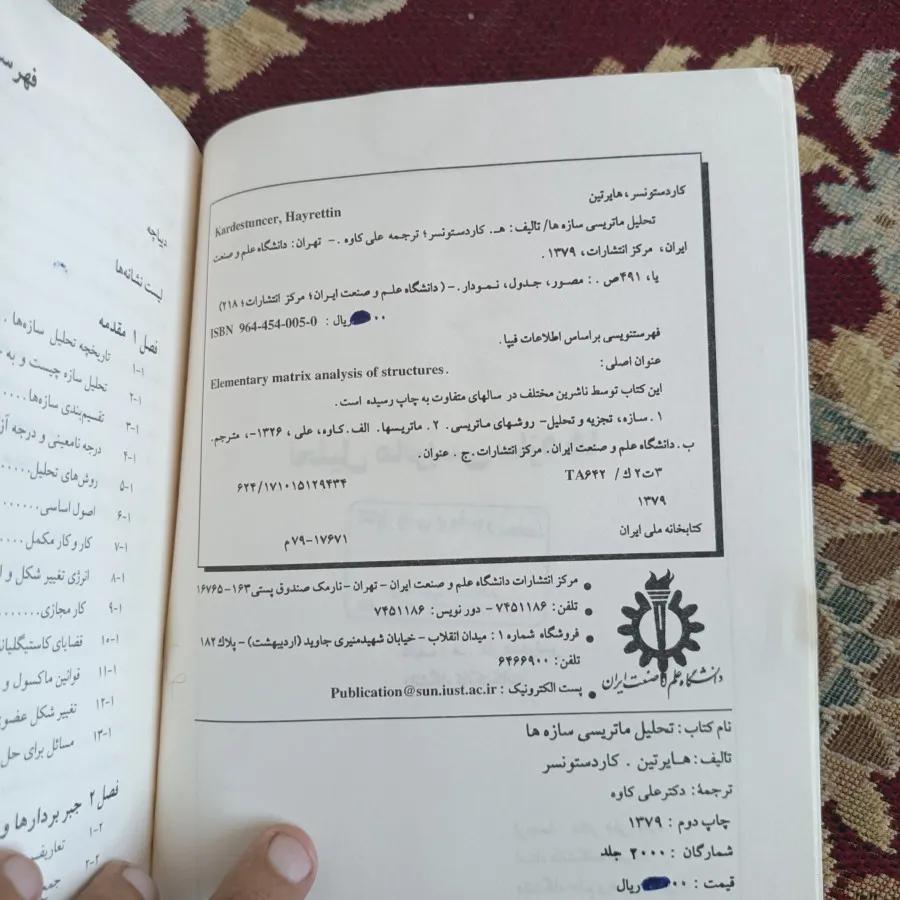 کاردستونسر، هایرتین
Kardestuncer, Hayrettin
تحلیل ماتریسی سازه ها/ تالیف : هـ. کاردستونسر؛ ترجمه علی کاوه .- تهران: دانشگاه علم و صنعت
ایران، مرکز انتشارات، ۱۳۷۹ .
یا، ۴۹۱ص . : مصور، جدول، نمودار.-( دانشگاه علم و صنعت ایران؛ مرکز انتشارات؛ ۲۱۸)
ISBN 964-454-005-0 : ۰۰ ریال
فهرستنویسی براساس اطلاعات فیپا.
عنوان اصلی:
Elementary matrix analysis of structures.
این کتاب توسط ناشرین مختلف در سالهای متفاوت به چاپ رسیده است.
۱ . سازه، تجزیه و تحلیل- روشهای ماتریسی. ۲. ماتریسها. الف.کاوه، علی ، ۱۳۲۶-، مترجم.
ب. دانشگاه علم و صنعت ایران. مرکز انتشارات.ج . عنوان.
۶۲۴/۱۷۱۰۱۵۱۲۹۴۳۴ ۳ت۲ک/ TA۶۴۲
۱۳۷۹
کتابخانه ملی ایران ۷۹-۱۷۶۷۱م
مرکز انتشارات دانشگاه علم و صنعت ایران - تهران - نارمک صندوق پستی ۱۶۳-۱۶۷۶۵
تلفن: ۷۴۵۱۱۸۶ - دور نویس: ۷۴۵۱۱۸۶
فروشگاه شماره ۱ : میدان انقلاب - خیابان شهیدمنیری جاوید (اردیبهشت) - پلاک ۱۸۲
تلفن: ۶۴۶۶۹۰۰
پست الکترونیک : Publication@sun.iust.ac.ir
دانشگاه علم و صنعت ایران
نام کتاب: تحلیل ماتریسی سازه ها
تالیف: هایرتین . کاردستونسر
ترجمهٔ: دکترعلی کاوه
چاپ دوم : ۱۳۷۹
شمارگان : ۲۰۰۰ جلد
قیمت : ۰۰ ریال
دیباچه
لیست نشانه‌ها
فصل ۱ مقدمه
۱-۱ تاریخچه تحلیل سازه‌ها .
۱-۲ تحلیل سازه چیست و به
۱-۳ تقسیم‌بندی سازه‌ها .....
۱-۴ درجه نامعینی و درجه
۱-۵ روش‌های تحلیل......
۱-۶ اصول اساسی.......
۱-۷ کار و کار مکمل.....
۱-۸ انرژی تغییر شکل و
۱-۹ کار مجازی........
۱-۱۰ قضایای کاستیگلیانو
۱-۱۱ قوانین ماکسول و
۱-۱۲ تغییر شکل عضوی
۱-۱۳ مسائل برای حل
فصل ۲ جبر بردارها و
۲-۱ تعاریف
۲-۲ جمع